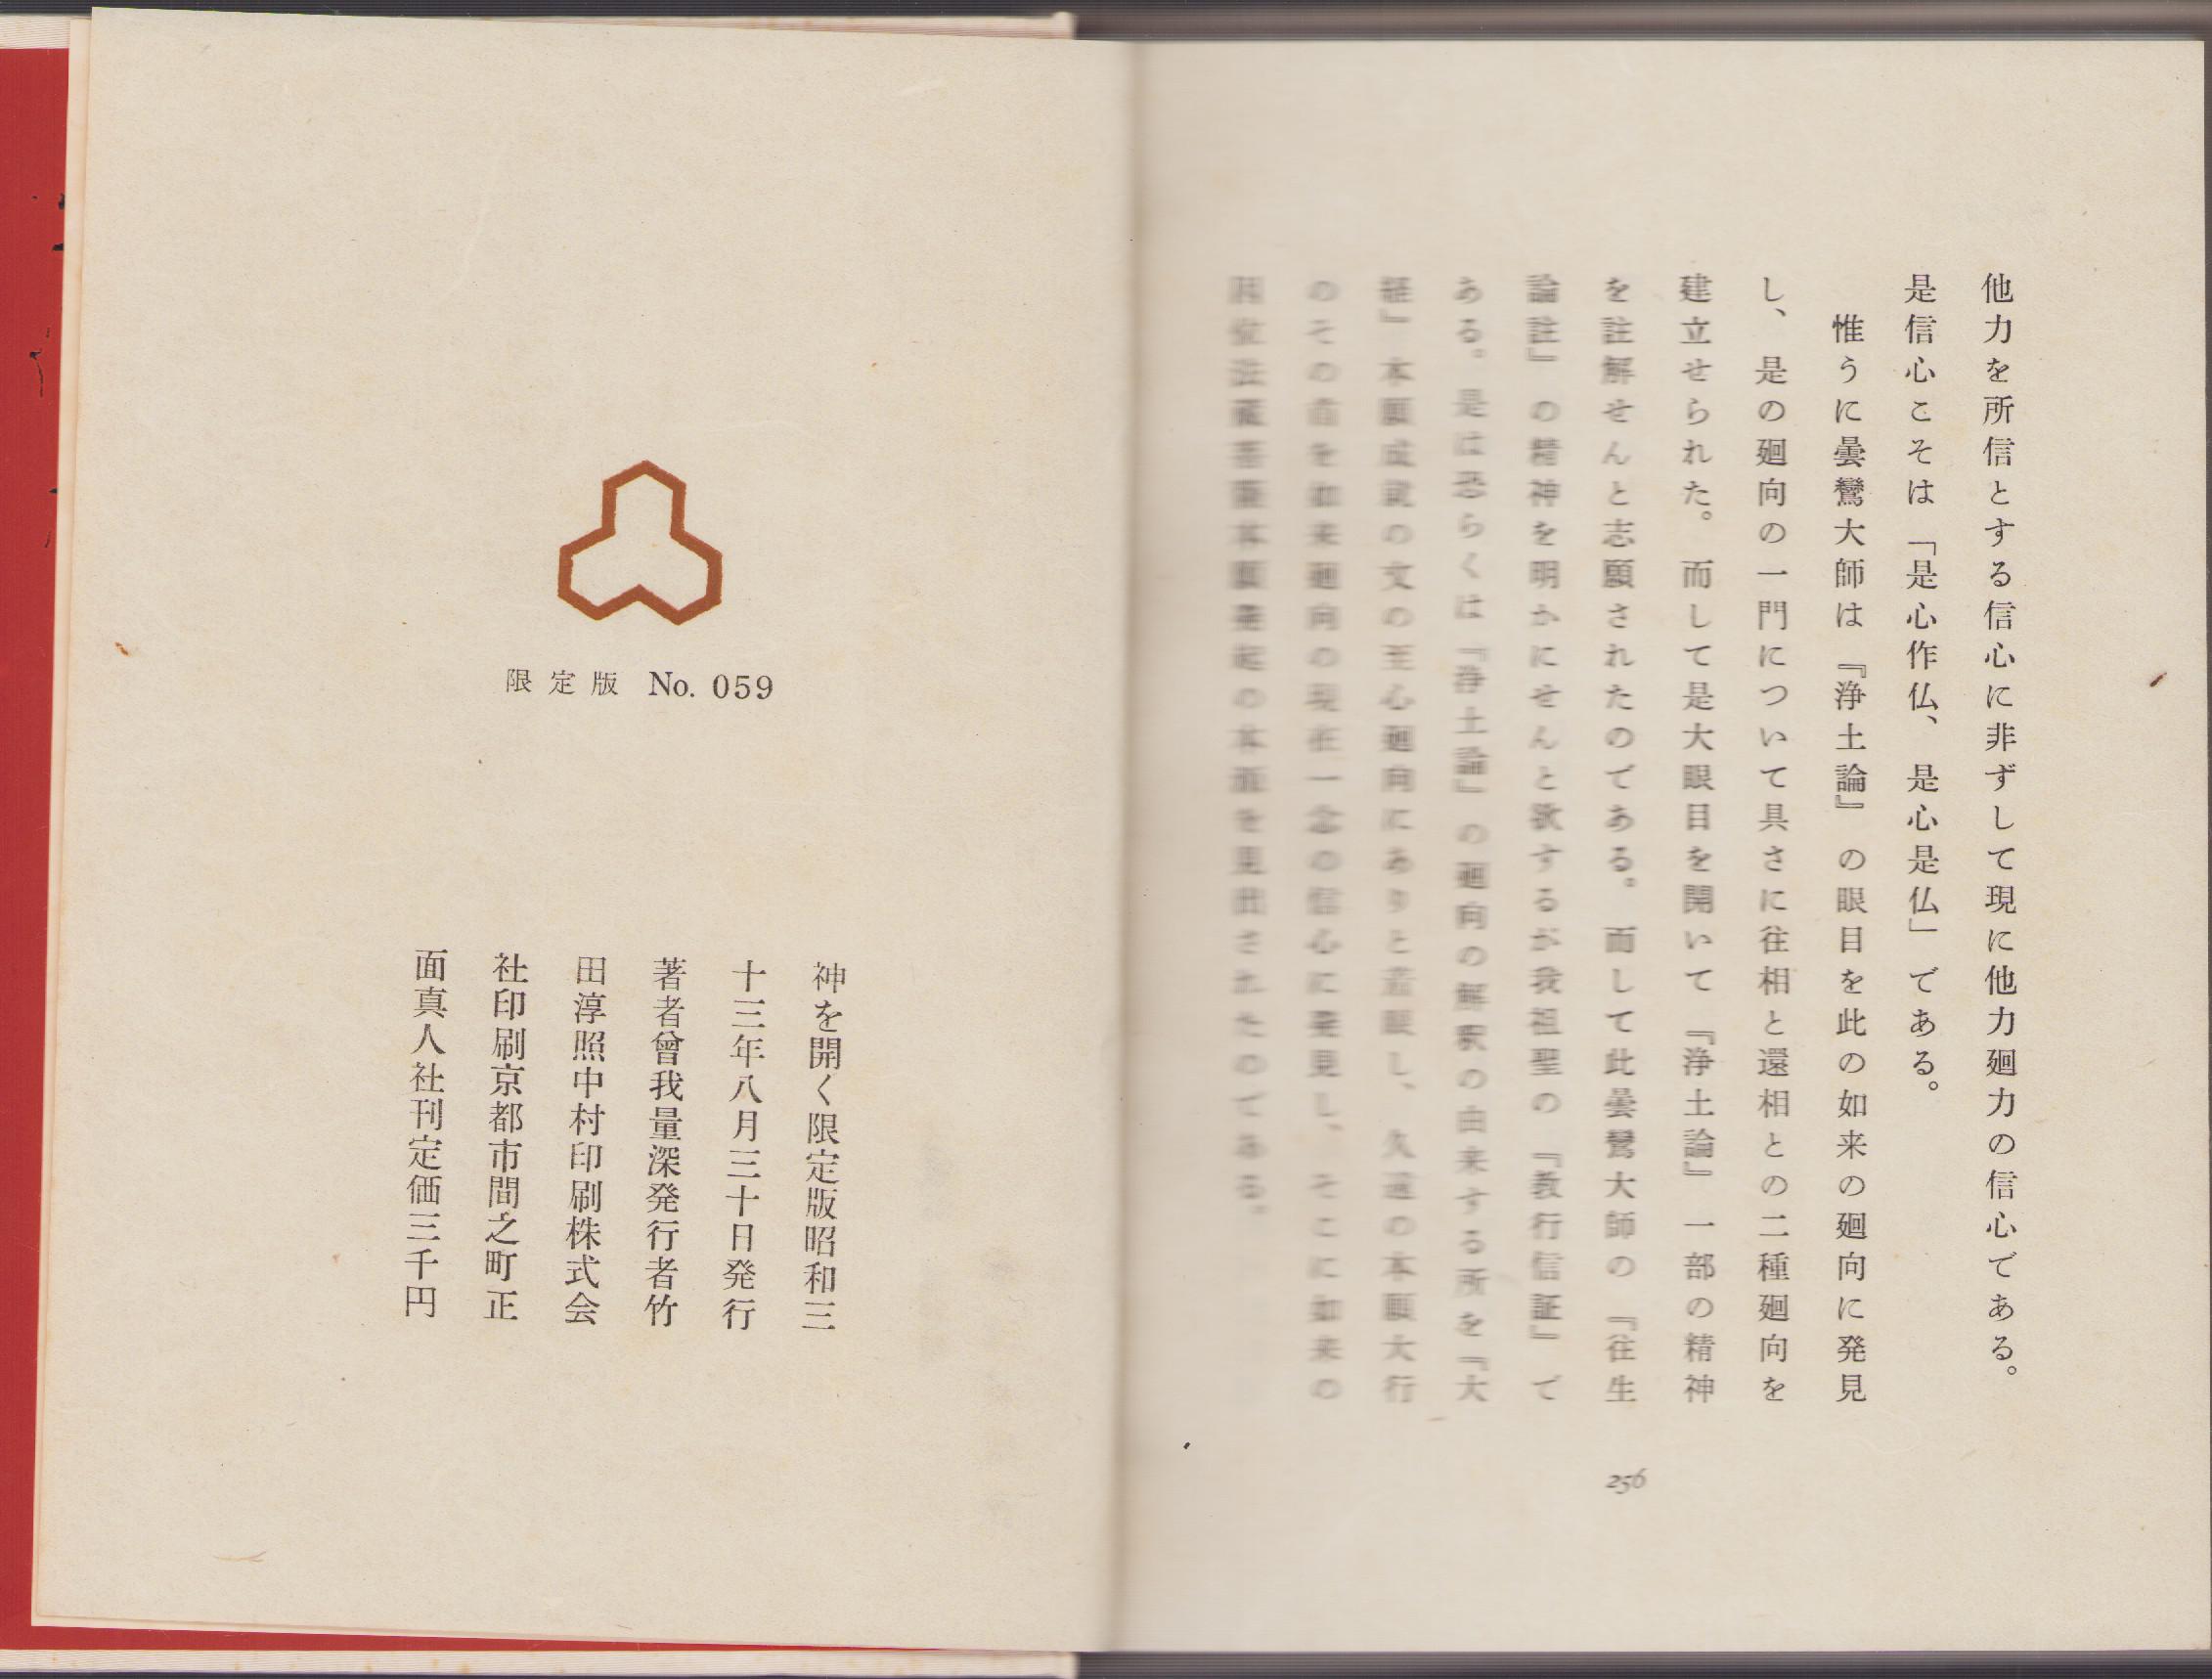 他力を所信とする信心に非ずして現に他力廻力の信心である。
是信心こそは「是心作仏、是心是仏」である。
惟うに曇鸞大師は『浄土論』の眼目を此の如来の廻向に発見
し、是の廻向の一門について具さに往相と還相との二種廻向を
建立せられた。而して是大眼目を開いて『浄土論』一部の精神
を註解せんと志願されたのである。而して此曇鸞大師の『往生
論註』の精神を明かにせんと欲するが我祖聖の『教行信証』で
ある。是は恐らくは『浄土論』の廻向の解釈の由来する所を『大
経』本願成就の文の至心廻向にありと着眼し、久遠の本願大行
のその命を如来廻向の現在一念の信心に発見し、そこに如来の
因位法蔵菩薩本願発起の本源を見出されたのである。
256
限定版 No. 059
神を開く限定版昭和三
十三年八月三十日発行
著者曾我量深発行者竹
田淳照中村印刷株式会
社印刷京都市間之町正
面真人社刊定価三千円